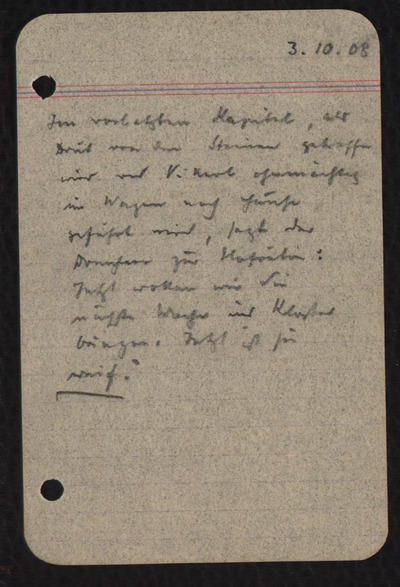 3.10.08
Im vorletzten Kapitel, als
von den Steinen getroffen
wird und V. Karl ohnmächtig
im Wagen nach Hause
geführt wird, sagt der
Domherr zur Hofrätin:
Jetzt wollen wir die
nächste Woche ins Kloster
bringen. Jetzt ist sie
reif."